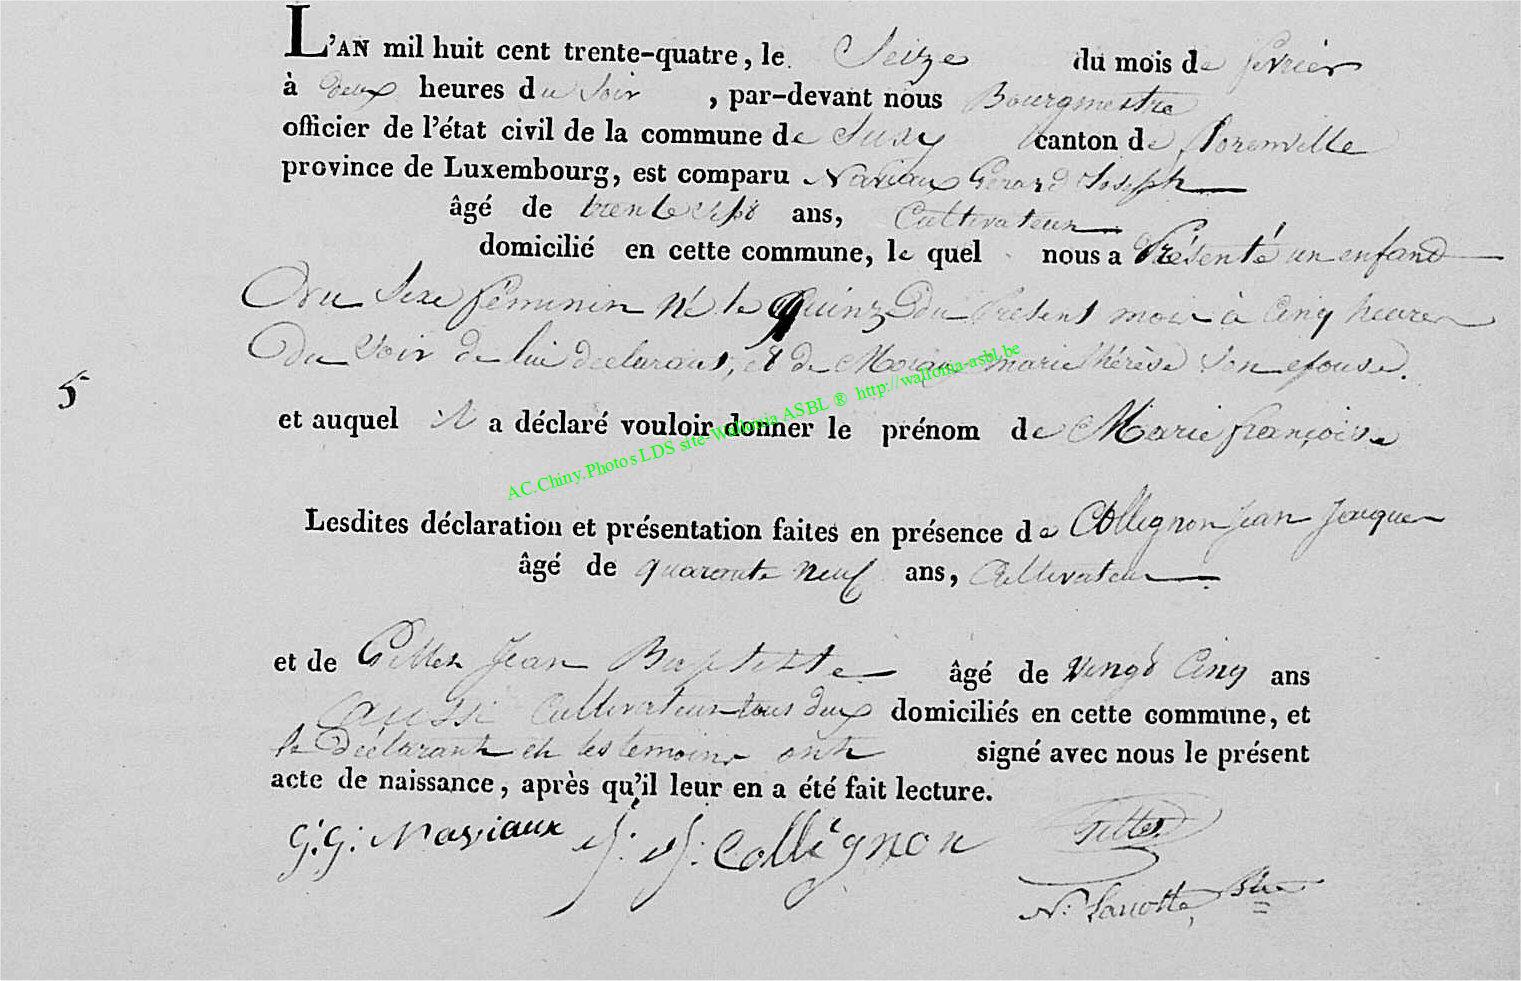 L'AN mil huit cent trente-quatre, le Seize du mois de fevrier
à deux heures du Soir, par-devant nous Bourgmestre
officier de l'état civil de la commune de Suxy canton de florenville
province de Luxembourg, est comparu Naviaux Gérard Joseph
âgé de trente sept ans, Cultivateur
domicilié en cette commune, le quel nous a Présenté un enfand
Du Sexe féminin né le Quinz Du present mois à Cinq heures
Du Soir de lui declarant, et de marie thérèse Son epouse.
5
et auquel il a déclaré vouloir donner le prénom de Marie françoise
AC.Chiny.Photos LDS site-Wallonia ASBL ® http://wallonia-asbl.be
Lesdites déclaration et présentation faites en présence de Collignon Jean Jacques
âgé de quarante neuf ans, Cultivateur
et de Gilles Jean Baptiste âgé de Vingt Cinq ans
aussi Cultivateur tous deux domiciliés en cette commune, et
le Déclarant et les temoins ont signé avec nous le présent
acte de naissance, après qu'il leur en a été fait lecture.
G: G: Naviaux J: J: Collignon Gilles
N: Lariotte, Btre